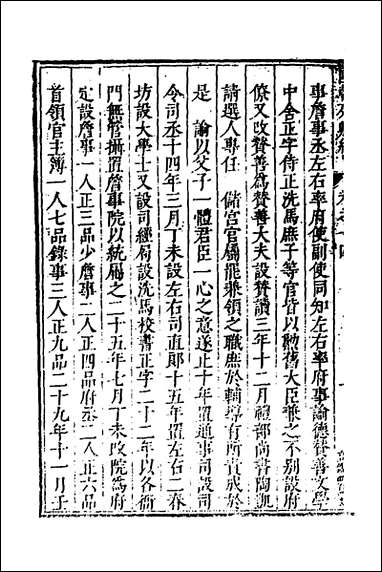 事詹事丞左右率府使副使同知左右率府事諭德贊善文學
中舍正字侍正洗馬庶子等官皆以勳舊大臣兼之不別設府
僚又改贊善爲贊善大夫設贊讀三年十二月禮部尚書陶凱
請選人專任　儲宮官屬罷兼領之職庶於輔導有所責成於
是　諭以父子一體君臣一心之意遂止十年置通事司設司
令司丞十四年三月丁未設左右司直郎十五年置左右二春
坊設大學士又設司經局設洗馬校書正字二十二年以各衙
門無管攝置詹事院以統屬之二十五年七月丁未改院爲府
定設詹事一人正三品少詹事二人正四品府丞二人正六品
首領官主簿一人七品錄事三人正九品二十九年十一月丁